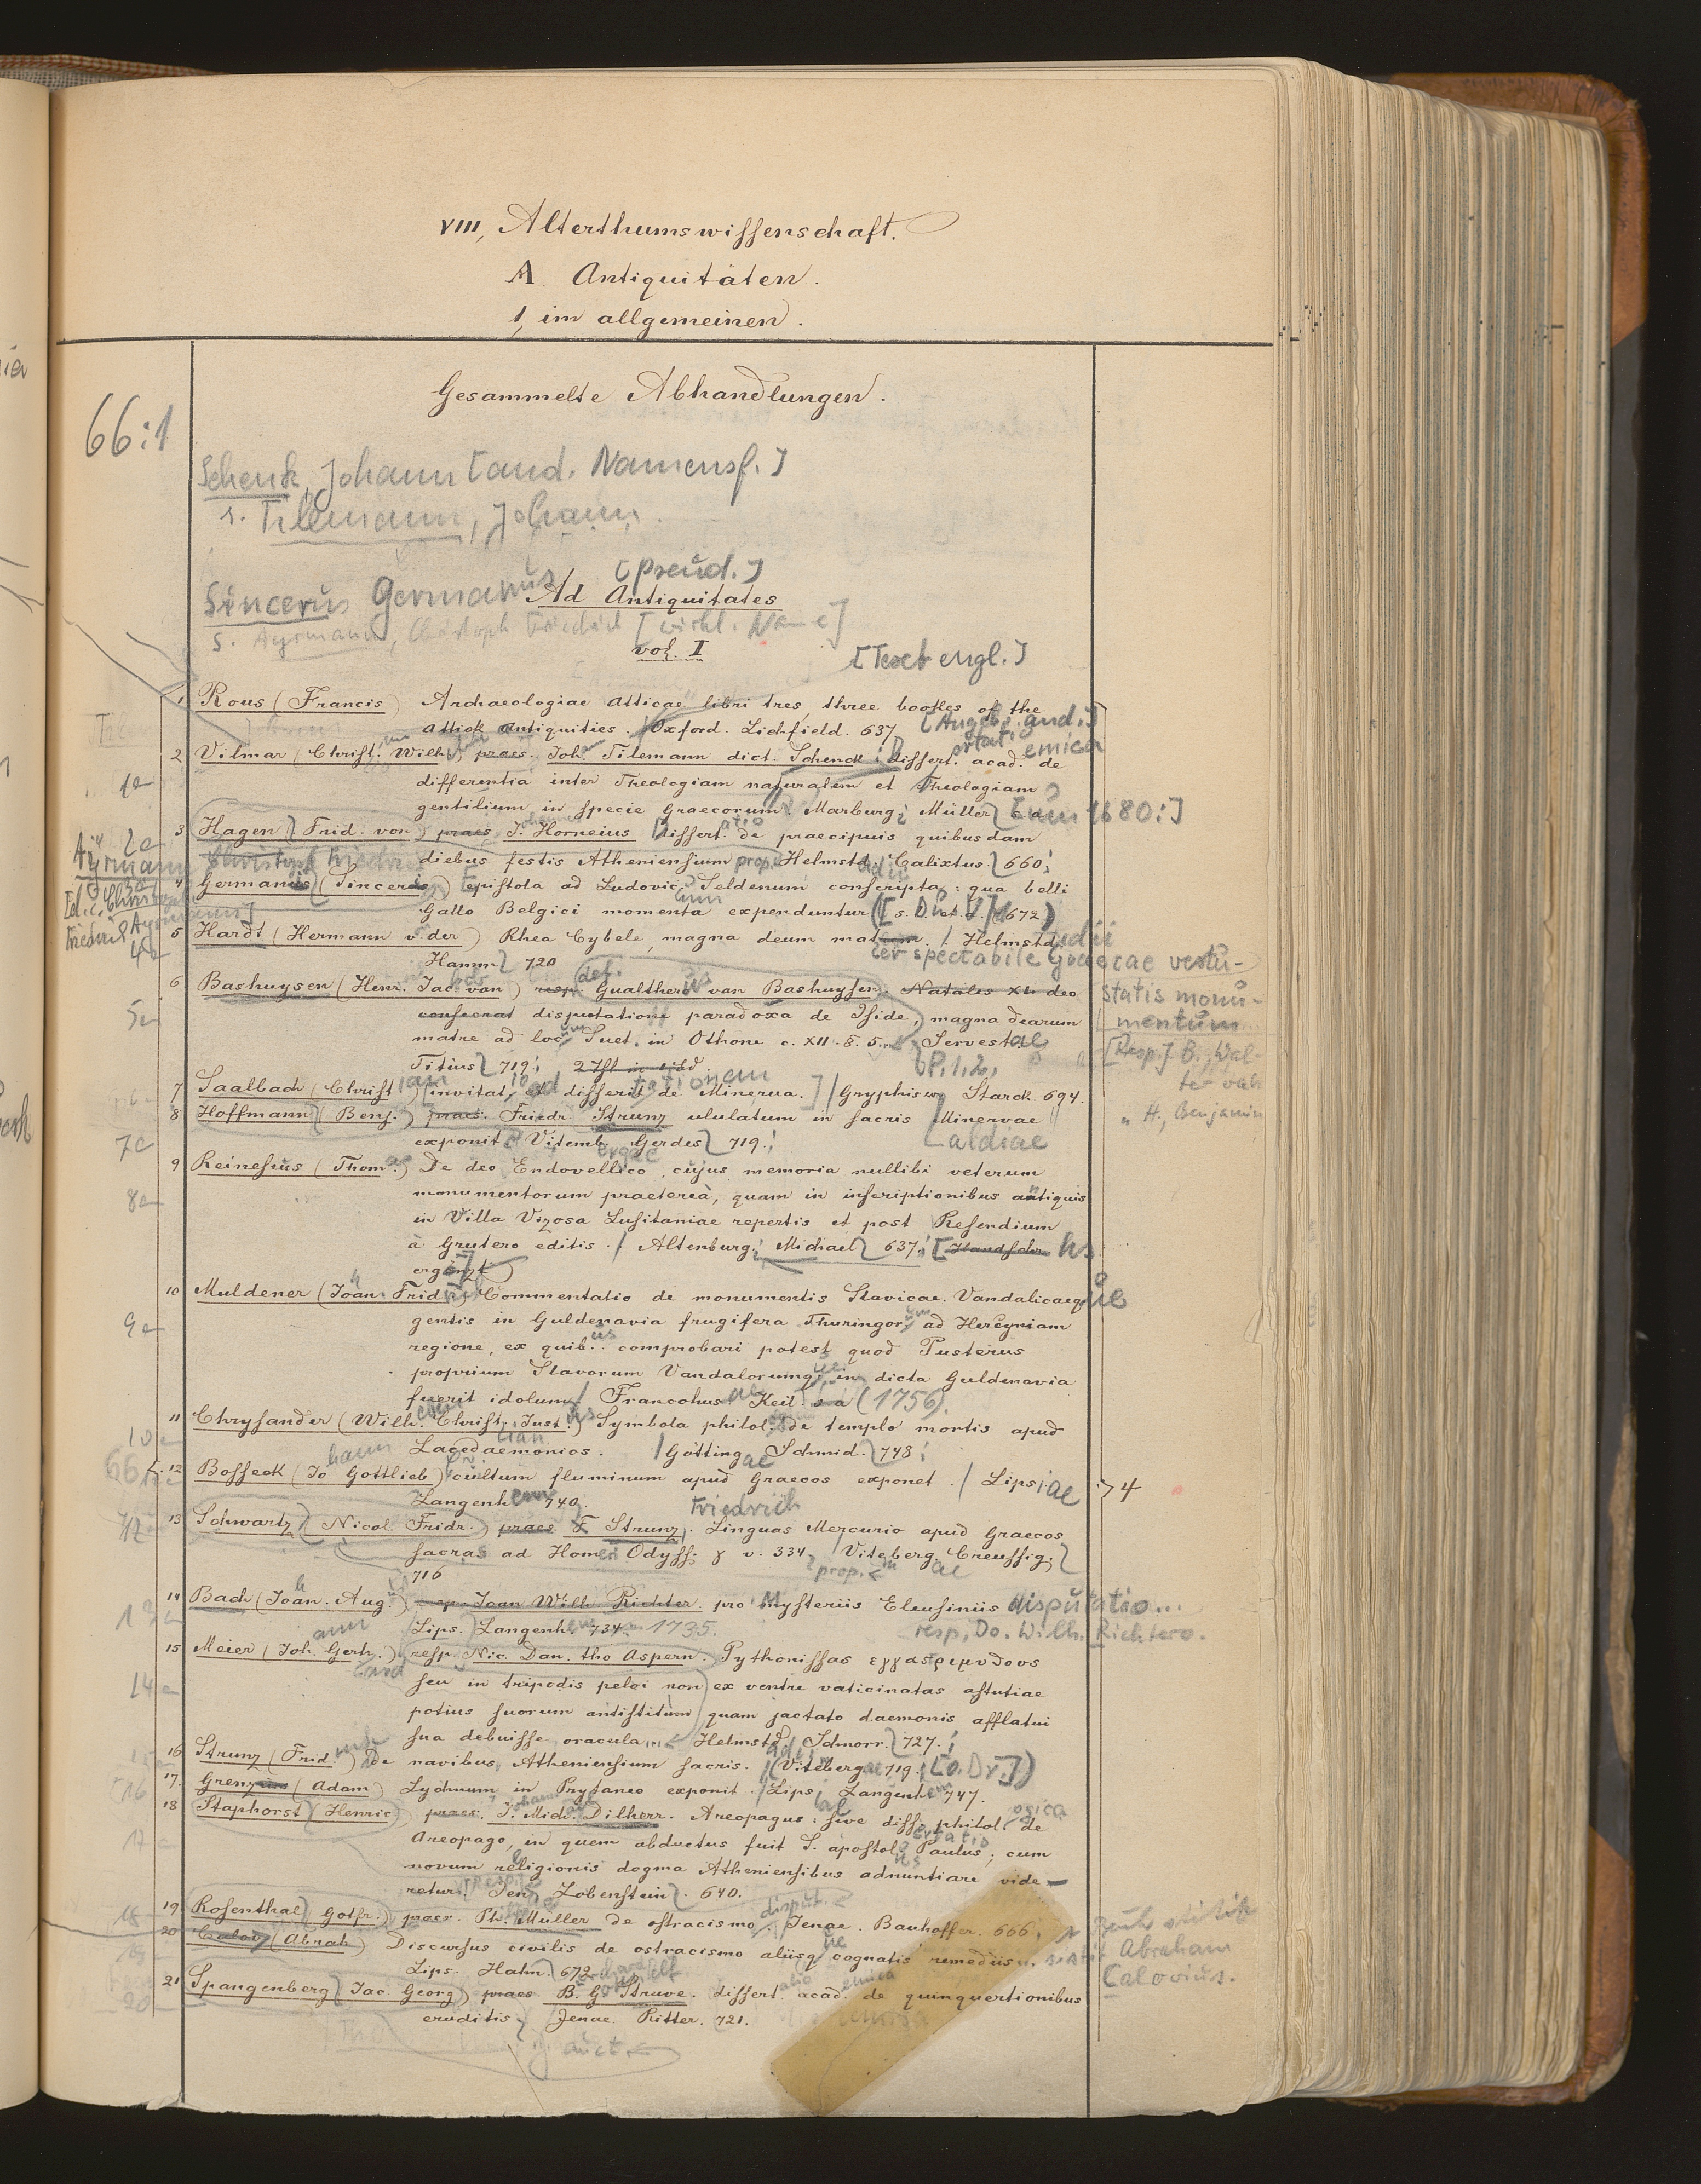 VIII, Alterthumswissenschaft.
A Antiquitäten.
1, im allgemeinen.
Gesammelte Abhandlungen.
66:1
Schenk, Johann [and. Namensf.]
s. Tilemann, Johann
[Pseud.]
Sincerus Germanus
Ad Antiquitates
s. Ayrmann, Christoph Friedrich [wirkl. Name]
vol. I
[Text engl.]
1 Rous (Francis) Archaeologiae Atticae libri tres, three bookes of the
Attick Antiquities. Oxford. Lichfield. 637. [Angeb. and.]
2 Vilmar (Christ. Wilh.) praes. Joh. Tilemann dict. Schenck dissert. acad. de
differentia inter Theologiam naturalem et Theologiam
gentilium in specie Graecorum. Marburg; Müller [um 1680:]
3 Hagen, Frid. von praes. J. Horneius Dissert. de praecipuis quibusdam
diebus festis Atheniensium prop. Helmstd. Calixtus 660;
4 Germanus (Sincerus) Epistola ad Ludovic. Seldenum conscripta: qua belli
Gallo Belgici momenta expenduntur 1672)
5 Hardt (Hermann v. der) Rhea Cybele, magna deum mater spectabile Graecae vetu-
statis monu-
mentum
Helmstadii
Hamm 720
6 Bashuysen (Henr. Jac. van) resp. Gualtherus van Bashuysen. Natales XL deo
consecrat disputatione paradoxa de Iside, magna dearum
matre ad loc. Suet. in Othone c. XII. §. 5. Servestae
Titius 719;
[Resp.] B., Wal-
ter van
P. 1.2,
7 Saalbach (Christ.) invitat, et disserit de Minerva. Gryphisw. Starck. 694.
8 Hoffmann (Benj.) praes. Friedr. Strunz ululatum in sacris Minervae
exponit. Vitemb. Gerdes 719.
" H., Benjamin
9 Reinesius (Thom.) De deo Endovellico, cujus memoria nullibi veterum
monumentorum praetereà, quam in inscriptionibus antiquis
in Villa Vizosa Lusitaniae repertis et post Resendium
à Grutero editis. Altenburg; Michael 637. [Handschr. hs.
ergänzt]
10 Muldener (Joan. Fridr.) Commentatio de monumentis Slavicae. Vandalicaeque
gentis in Guldenavia frugifera Thuringor. ad Hercyniam
regione, ex quib. comprobari potest quod Pusterus
proprium Slavorum Vandalorumq; in dicta Guldenavia
fuerit idolum Francohus. Keil. s a (1756).
11 Chrysander (Wilh. Christ. Just.) Symbola philol. de templo mortis apud
Lacedaemonios. Götting. Schmid. 748
12 Bosseck (Jo Gottlieb) cultum fluminum apud Graecos exponet. Lipsiae
Langenhem 740.
4
13 Schwartz Nicol. Fridr. praes F Strunz. Linguas Mercurio apud Graecos
Friedrich
sacras ad Homeri Odyss. γ v. 334, Viteberg. Creussig;
716
prop.
14 Bach (Joan. Aug.) resp. Joan Wilh. Richter. pro mysteriis Eleusiniis disputatio...
Lips. Langenh. 734. 1735.
resp. Jo. Wilh. Richtero.
15 Meier (Joh. Gerh.) resp. Nic. Dan. tho Aspern. Pythonissas εγγαστριμυθους
seu in tripodis pelvi non ex ventre vaticinatas astutiae
potius suorum antistitum quam jactato daemonis afflatui
sua debuisse oracula... Helmstd. Schnorr. 727.
16 Strunz (Frid.) De navibus Atheniensium sacris. Vitebergae 719. [o. Dr.])
17 Grenz (Adam) Lychnum in Prytaneo exponit. Lips. Langenhem 747.
18 Staphorst (Henric.) praes. J. Mich. Dilherr. Areopagus: sive diss. philol. de
Areopago, in quem abductus fuit S. apostol. Paulus; cum
novum religionis dogma Atheniensibus adnuntiare vide-
retur. Jen. Lobenstein. 640.
19 Rosenthal Gotfr. praes. Ph. Müller de ostracismo. Jenae. Bauhoffer. 666
disput.
20 Calov (Abrah.) Discursus civilis de ostracismo aliisq. cognatis remediis
Abraham
Calovius.
Lips. Hahn. 672
21 Spangenberg Jac. Georg praes B. G Struve. dissert. acad. de quinquertionibus
eruditis, Jenae. Ritter. 721.
auct.